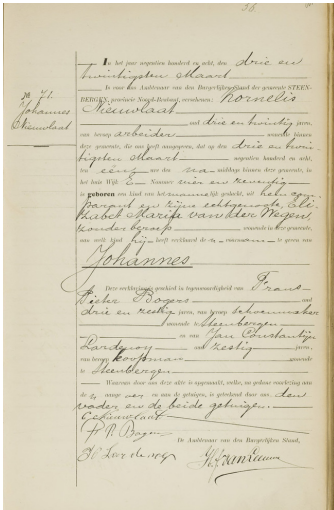 No 71.
Johannes
Nieuwlaat
In het jaar negentien honderd en acht, den drie en
twintigsten Maart
is voor ons Ambtenaar van den Burgerlijken Stand der gemeente STEEN-
BERGEN, provincie Noord-Brabant, verschenen: Kornelis
Nieuwlaat
oud drie en twintig jaren,
van beroep arbeider wonende binnen
deze gemeente, die ons heeft aangegeven, dat op den drie en twin-
tigsten Maart negentien honderd en acht,
ten één ure des na middags binnen deze gemeente, in
het huis Wijk E Nummer vier en zeventig
is geboren een kind van het mannelijk geslacht, uit hem com-
parant en zijne echtgenoote, Eli-
zabet Maria van der Wegen,
zonder beroep
aan welk kind hij heeft verklaard de voornaam te geven van
Johannes
Deze verklaring is geschied in tegenwoordigheid van Frans
Pieter Bogers oud
drie en zestig jaren, van beroep schoenmaker
wonende te Steenbergen
en van Jan Constantijn
oud zestig jaren,
van beroep koopman wonende
te Steenbergen
Waarvan door ons deze akte is opgemaakt, welke, na gedane voorlezing aan
de aangever en aan de getuigen, is geteekend door ons, den
vader en de beide getuigen.
C Nieuwlaat
F. P. Bogers
De Ambtenaar van den Burgerlijken Stand,